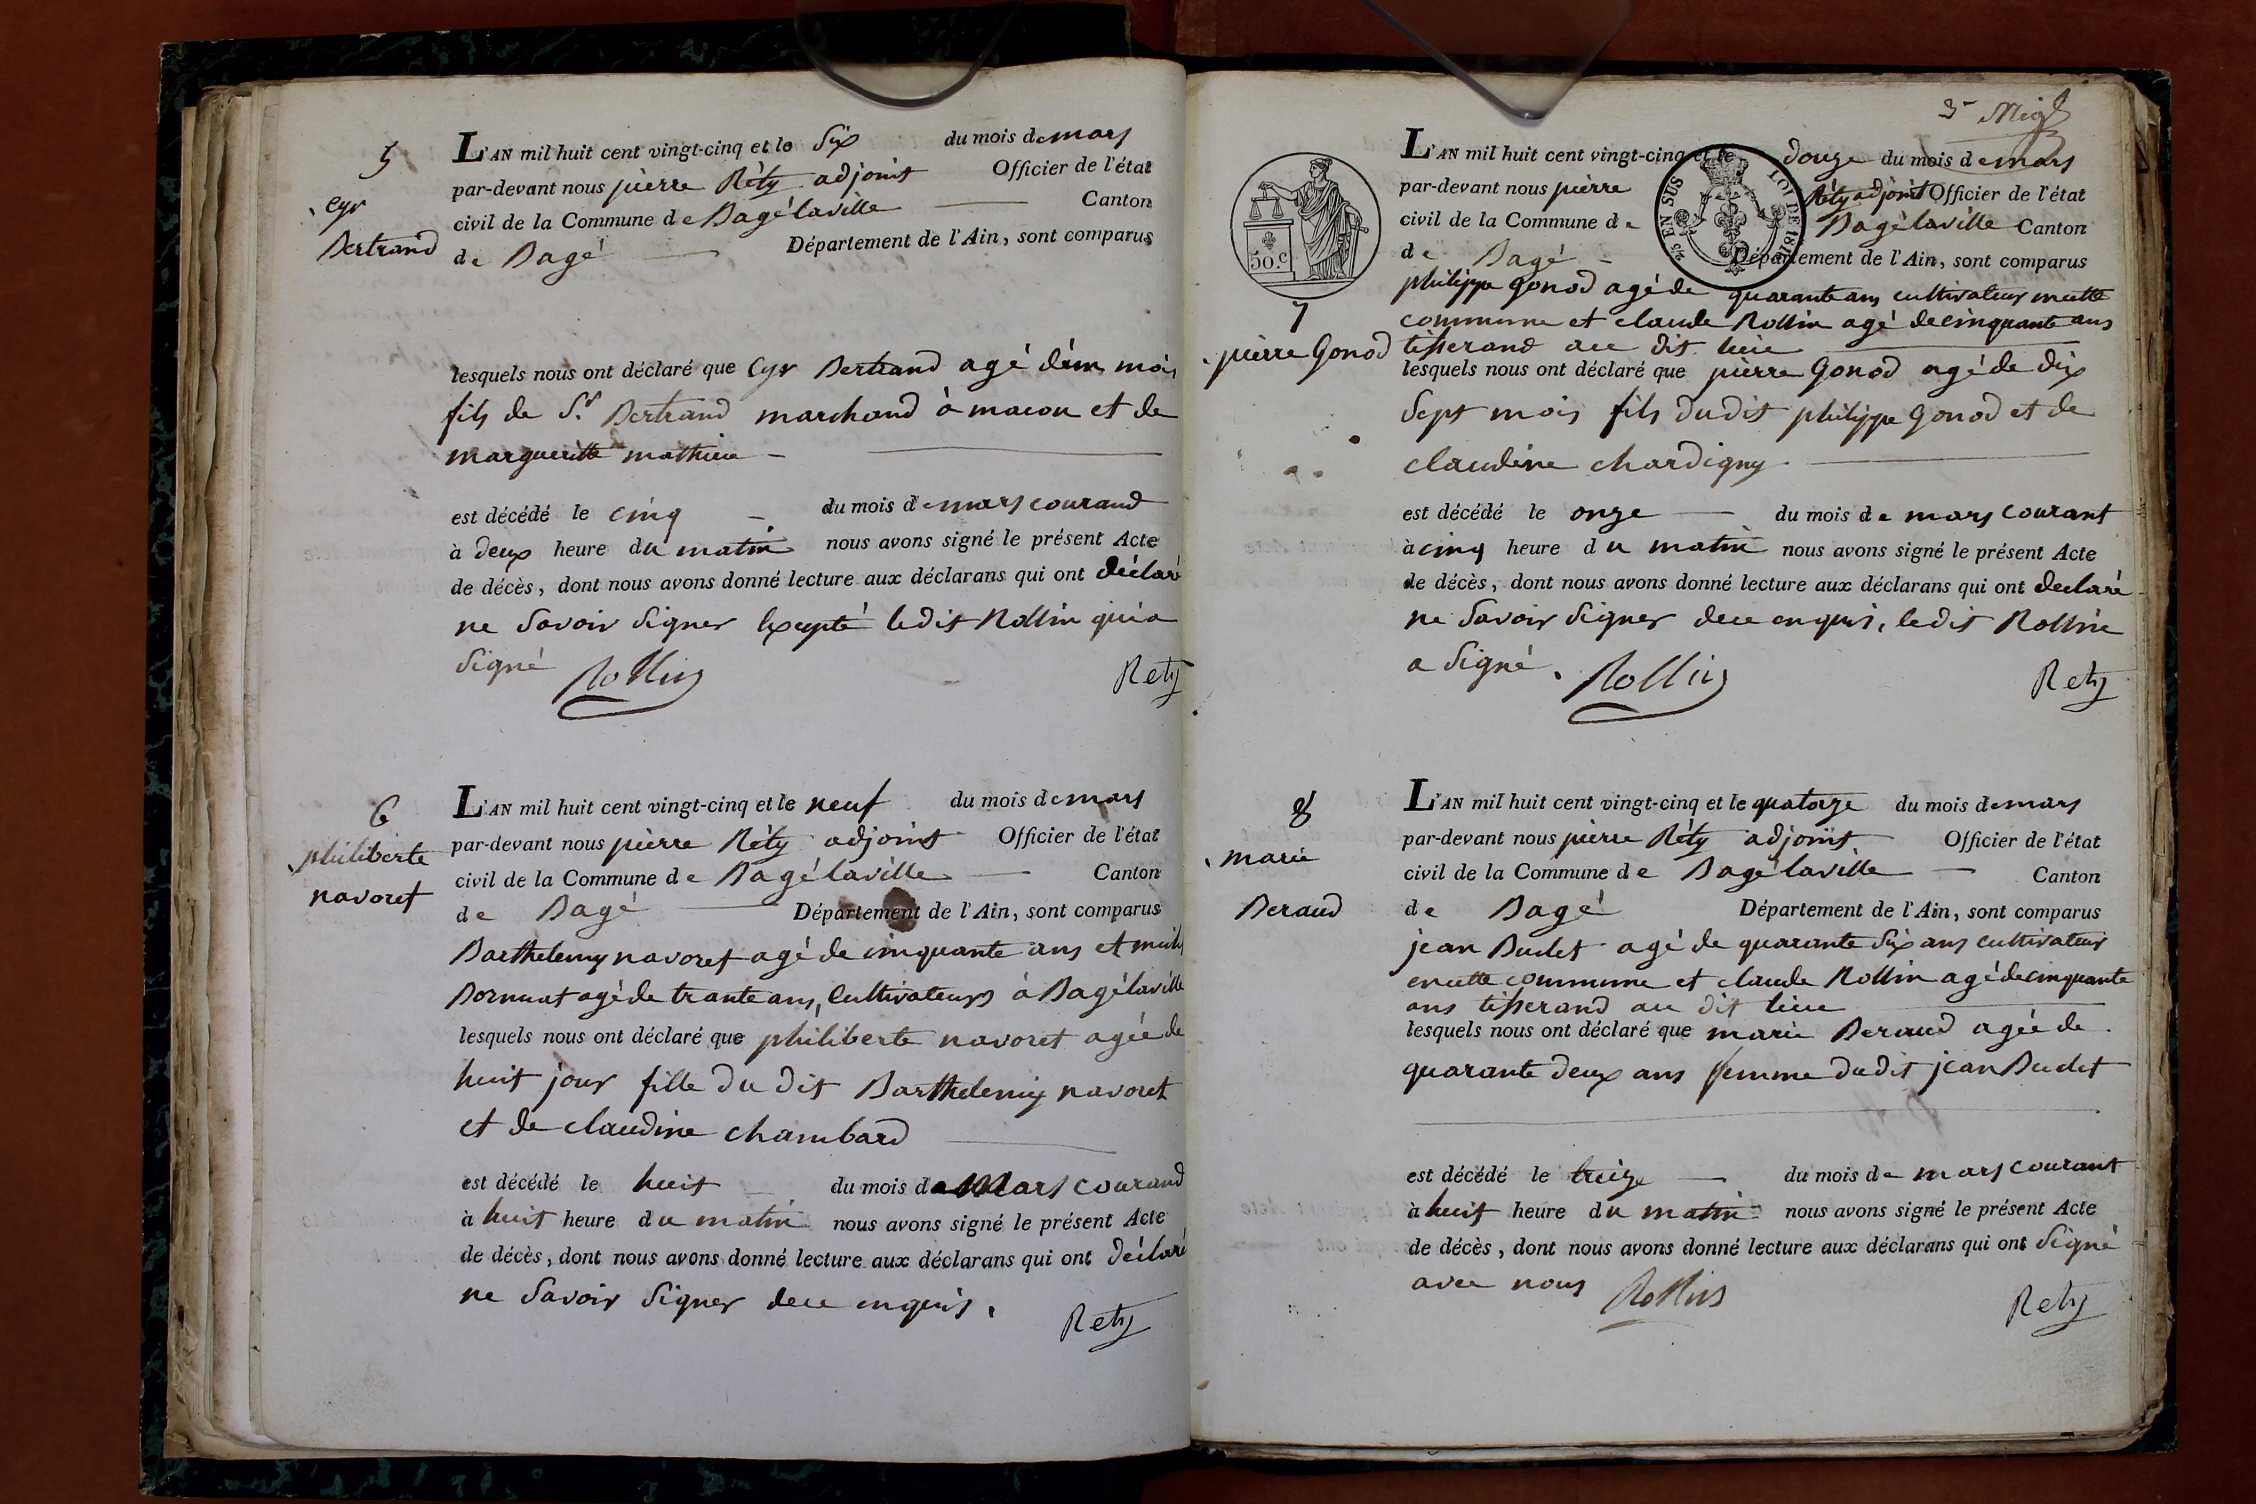 5
Cyr
Bertrand
L'AN mil huit cent vingt-cinq et le Six du mois de mars
par-devant nous pierre Réty adjoint Officier de l'état
civil de la Commune de Bagélaville Canton
de Bagé Département de l'Ain, sont comparus
lesquels nous ont déclaré que Cyr Bertrand agé d'un mois
fils de Sr. Bertrand marchand à macon et de
margueritte mathieu
est décédé le cinq du mois de mars courand
à deux heure du matin nous avons signé le présent Acte
de décès, dont nous avons donné lecture aux déclarans qui ont déclaré
ne Savoir Signer Excepté ledit Rollin qui a
Signé Rollin Rety
6
philiberte
navoret
L'AN mil huit cent vingt-cinq et le neuf du mois de mars
par-devant nous pierre Réty adjoint Officier de l'état
civil de la Commune de Bagélaville Canton
de Bagé Département de l'Ain, sont comparus
Barthelemy navoret agé de cinquante ans et
agé de trante ans, Cultivateurs à Bagélaville
lesquels nous ont déclaré que philiberte navoret agée de
huit jour fille du dit Barthelemy navoret
et de claudine chambard
est décédé le huit du mois de Mars courand
à huit heure du matin nous avons signé le présent Acte
de décès, dont nous avons donné lecture aux déclarans qui ont déclaré
ne Savoir Signer de ce enquis.
Rety
3e
50.c
25 EN SUS LOI DE 1816
L'AN mil huit cent vingt-cinq et le douze du mois de mars
par-devant nous pierre Réty adjoint Officier de l'état
civil de la Commune de Bagélaville Canton
de Bagé Département de l'Ain, sont comparus
philippe gonod agé de quarante ans cultivateur encette
commune et claude Rollin agé de cinquante ans
tisserand au dit lieu
7
pierre Gonod
lesquels nous ont déclaré que pierre Gonod agé de dix
Sept mois fils du dit philippe gonod et de
claudine chardigny
est décédé le onze du mois de mars courant
à cinq heure du matin nous avons signé le présent Acte
de décès, dont nous avons donné lecture aux déclarans qui ont declaré
ne Savoir Signer de ce enquis, ledit Rollin
a Signé. Rollin Rety
8
marie
Beraud
L'AN mil huit cent vingt-cinq et le quatorze du mois de mars
par-devant nous pierre Réty adjoint Officier de l'état
civil de la Commune de Bagélaville Canton
de Bagé Département de l'Ain, sont comparus
jean Budet agé de quarante Six ans cultivateur
en cette commune et claude Rollin agé de cinquante
ans tisserand au dit lieu
lesquels nous ont déclaré que marie Beraud agée de
quarante deux ans femme du dit jean Budet
est décédé le treize du mois de mars courant
à huit heure du matin nous avons signé le présent Acte
de décès, dont nous avons donné lecture aux déclarans qui ont Signé
avec nous Rollin Rety